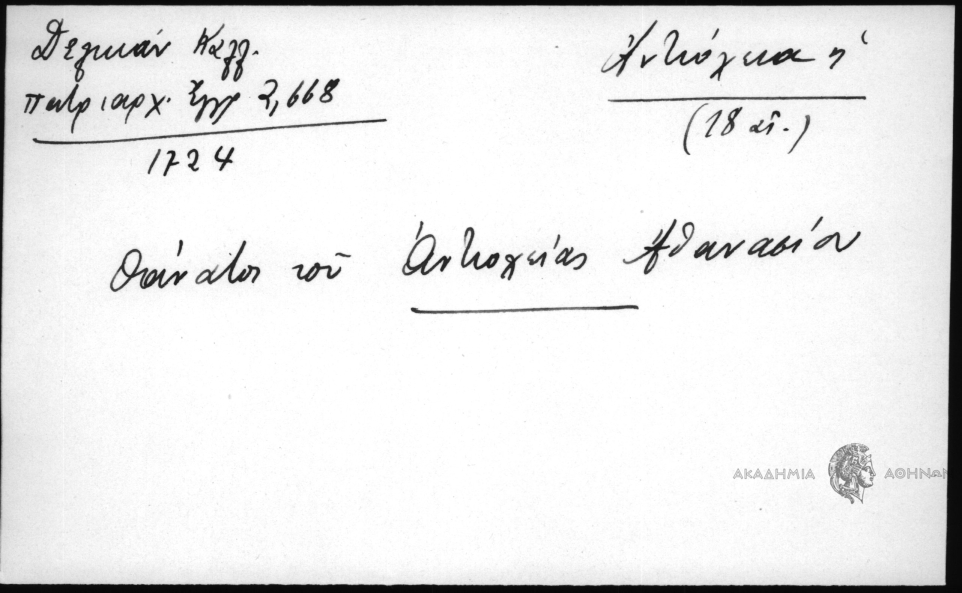 Δελικάν Καλλ.
πατριαρχ. Ἔγγρ 2,668
1724
Ἀντιόχεια ἡ
(18 αἰ.)
Θάνατος τοῦ Ἀντιοχείας Ἀθανασίου
ΑΚΑΔΗΜΙΑ ΑΘΗΝΩΝ